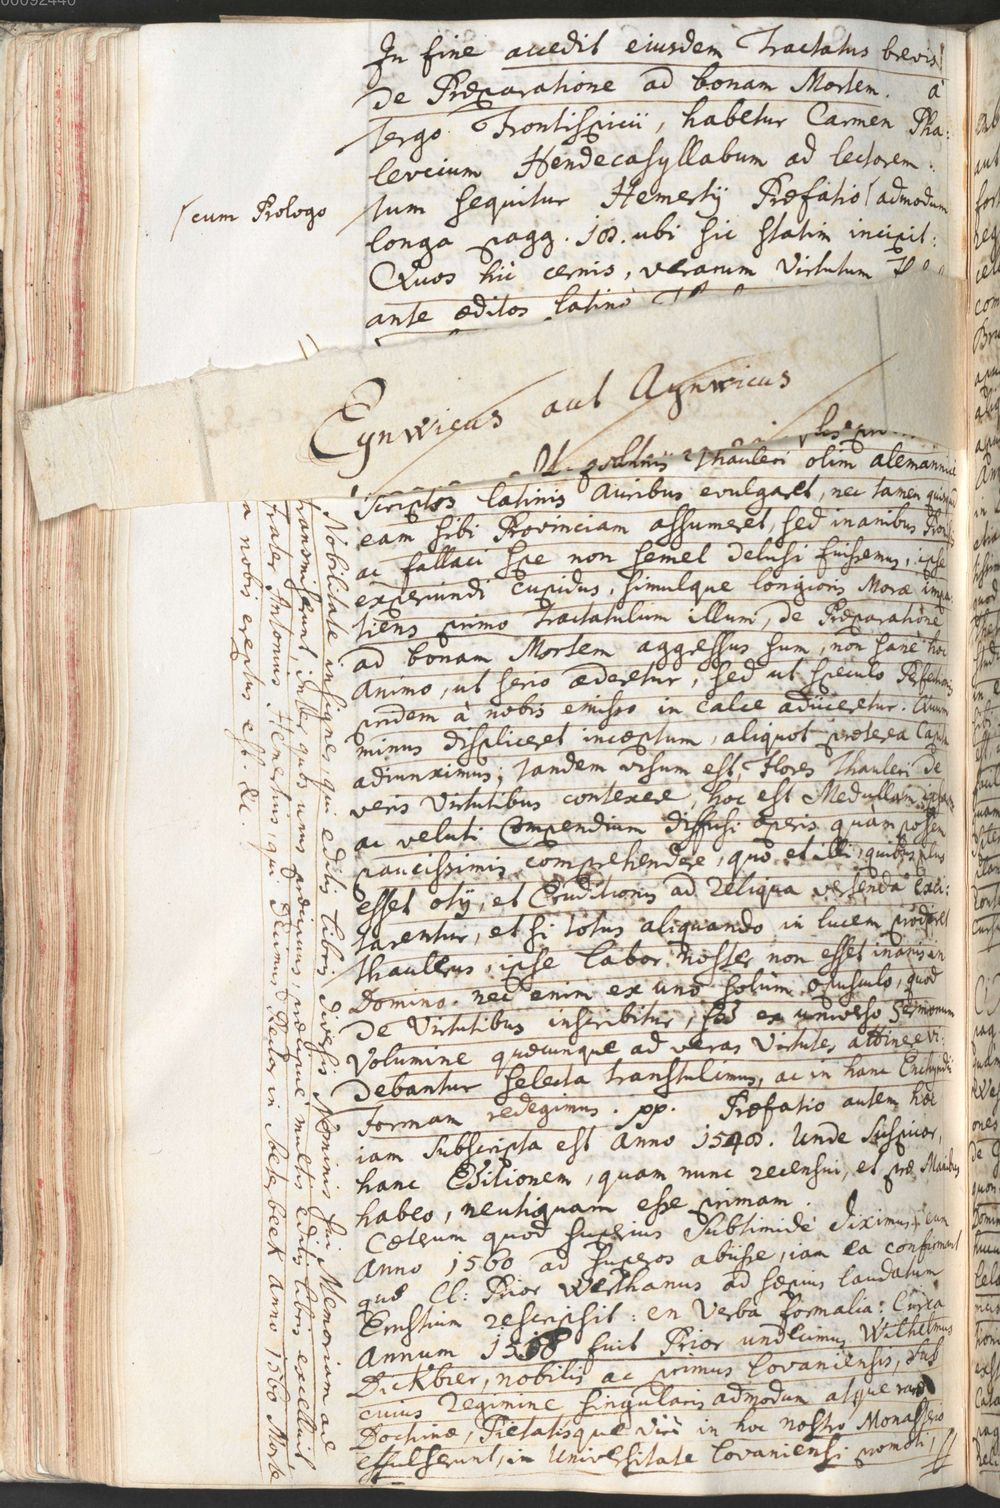 In fine accedit eiusdem Tractatus brevis
de Præparatione ad bonam Mortem. à
tergo Frontispicii, habetur Carmen Pha:
leucium Hendecasyllabum ad lectorem:
tum sequitur Hemertij Præfatio admodum
cum Prologo
longa pagg. 108. ubi sic statim incipit:
Quos hic cernis, verarum Virtutum
ante æditos latino
Eynwicus aut Aynwicus
Thauleri olim alemannice
scriptos latinis auribus evulgaret, nec tamen
eam sibi Provinciam assumeret, sed inanibus
ac fallaci spe non semel delusi fuissemus, ipse
experiundi cupidus, simulque longioris Moræ impa:
tiens primo Tractatulum illum, de Præparatione
ad bonam Mortem aggressus sum, non sane hoc
animo, ut serio æderetur, sed ut speculo Perfectionis
pridem à nobis emisso in calce adiiceretur. Quum
minus displiceret inceptum, aliquot præterea Capita
adiunximus; tandem visum est, Flores Thauleri de
veris Virtutibus contexere, hoc est Medullam
ac veluti Compendium diffusi operis quàm possem
paucissimis comprehendere, quo et illi, quibus plus
esset otij, et Eruditionis ad reliqua versenda exci:
tarentur, et si totus aliquando in lucem prodiret
Thaulerus, ipse labor noster non esset inanis in
Domino. nec enim ex uno solùm opusculo, quod
de Virtutibus inscribitur, sed ex universo Sermonum
Volumine quæcunque ad veras Virtutes attinere vi:
debantur selecta transtulimus, ac in hanc Enchyridii
formam redegimus. pp. Præfatio autem hæc
iam subscripta est anno 1548. Unde suspicor,
hanc Editionem, quam nunc recensui, et præ Manibus
habeo, neutiquam esse primam.
Cæterum quod superius subtimidè diximus, eum
Anno 1560 ad superos abiisse, iam ea confirmant
quæ Cl: Prior Werthanus ad sæpius laudatum
Ernstium rescripsit: en Verba formalia: Circa
Annum fuit Prior undecimus Wilhelmus
Dickbier, nobilis ac primus Lovaniensis, sub
cuius regimine singularis admodum atque raræ
Doctrinæ, Pietatisque Viri in hoc nostro Monasterio
effulserunt, in Universitate Lovaniensi promoti,
Nobilitate insignes, qui editis libris diversis Nominis sui Memoriam ad
transmiserunt, inter quos unus præcipuus, pluribusque multis editis libris excelluit
Frater Antonius Hemertius, qui Primus Rector in Setersbeek Anno 1560 Morte
a nobis ereptus est. &c.